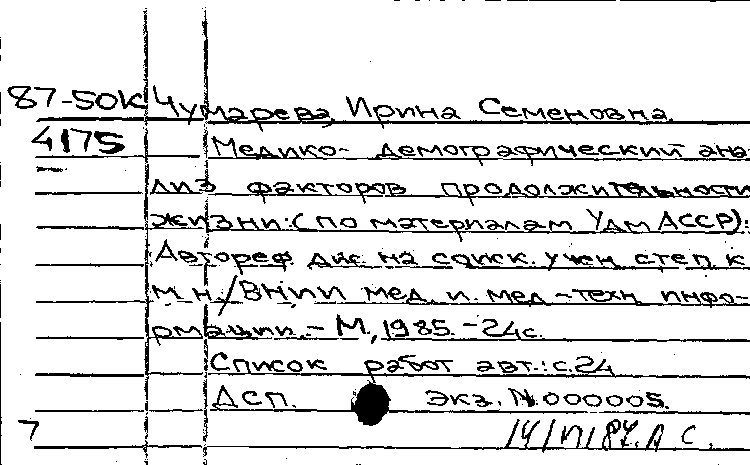 87-50К Чумарева Ирина Семеновна
4175 Медико- демографический ана
лиз факторов продолжительности
жизни:(по материалам Удм АССР):
Автореф. дис. на соиск. учен. степ. к.
м. н./ВНИИ мед. и. мед-техн. инфо-
рмации.-М., 1985.-24с.
Список работ авт.: с.24
Дсп. Экз. N.000005.
7